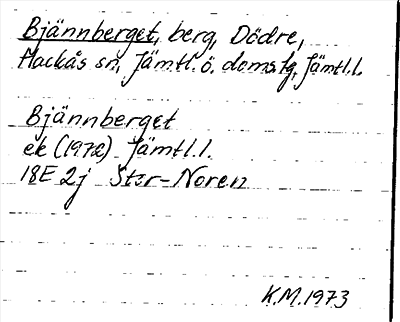 Bjännberget, berg, Dödre,
Hackås sn, Jämtl. ö. doms.lg, Jämtl.l.
Bjännberget
ek (1972) Jämtl.l.
18E 2j Stor-Noren
K.M.1973